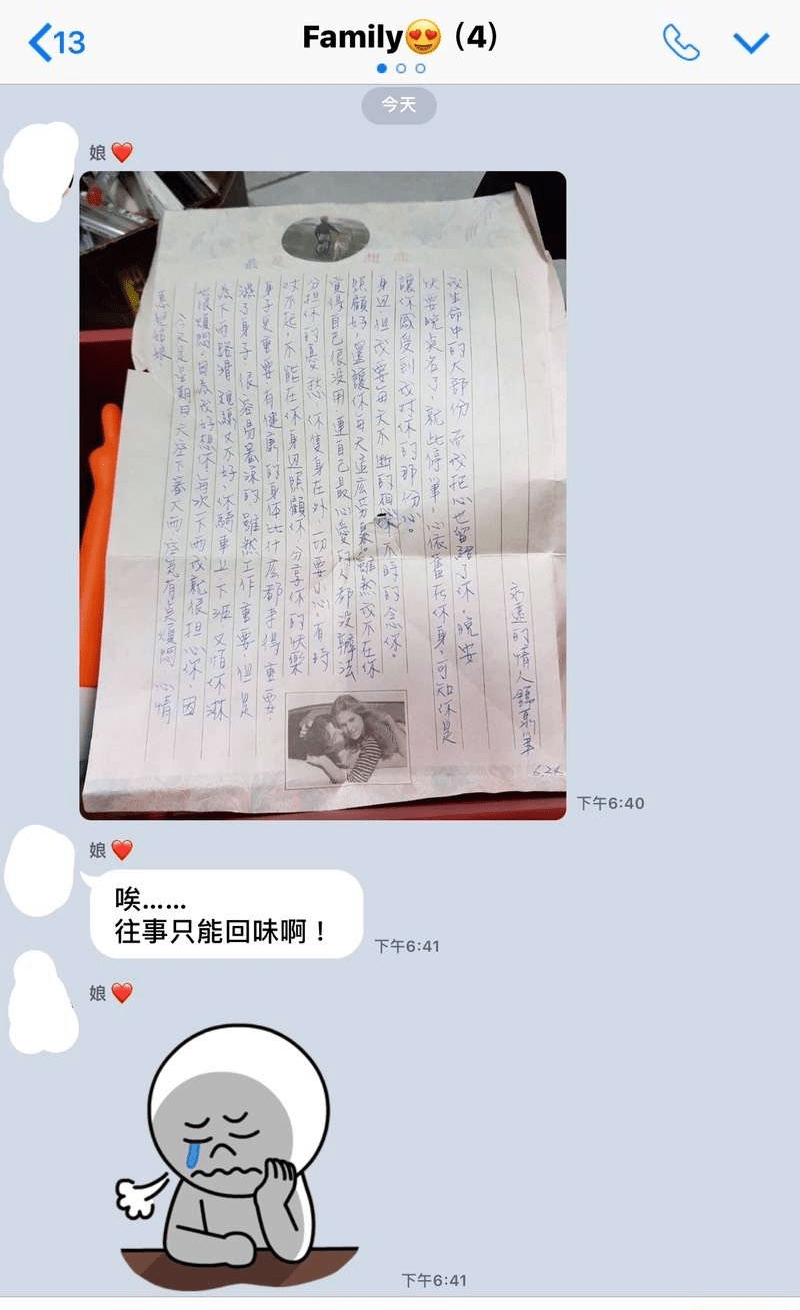 13
Family😍 (4)
今天
娘❤️
姑娘
今天是星期日天空下著大雨,空氣有點煩悶,心情
很煩悶,因為我好想你,每次一下雨我就很担心你,因
為下雨路滑,視線又不好,你騎車上下班,又怕你淋
濕了身子,很容易著涼的,雖然工作重要,但是
身子更重要,有健康的身体比什麼都來得重要.
對不起,不能在你身边照顧你,分享你的快樂
分担你的憂愁,你隻身在外,一切要小心,有時
覺得自己很沒用,連自己最心愛的人都沒辦法
照顧好,還讓你每天這麼勞累。雖然我不在你
身边,但我要每天不斷的想你,不時的念你。
讓你感受到我對你的那份心。
快要晚点名了,就此停筆,心依舊在你身,可知你是
我生命中的大部份,而我把心也留給了你,晚安
永遠的情人 筆
6.24
下午6:40
娘❤️
唉……
往事只能回味啊！
下午6:41
娘❤️
下午6:41